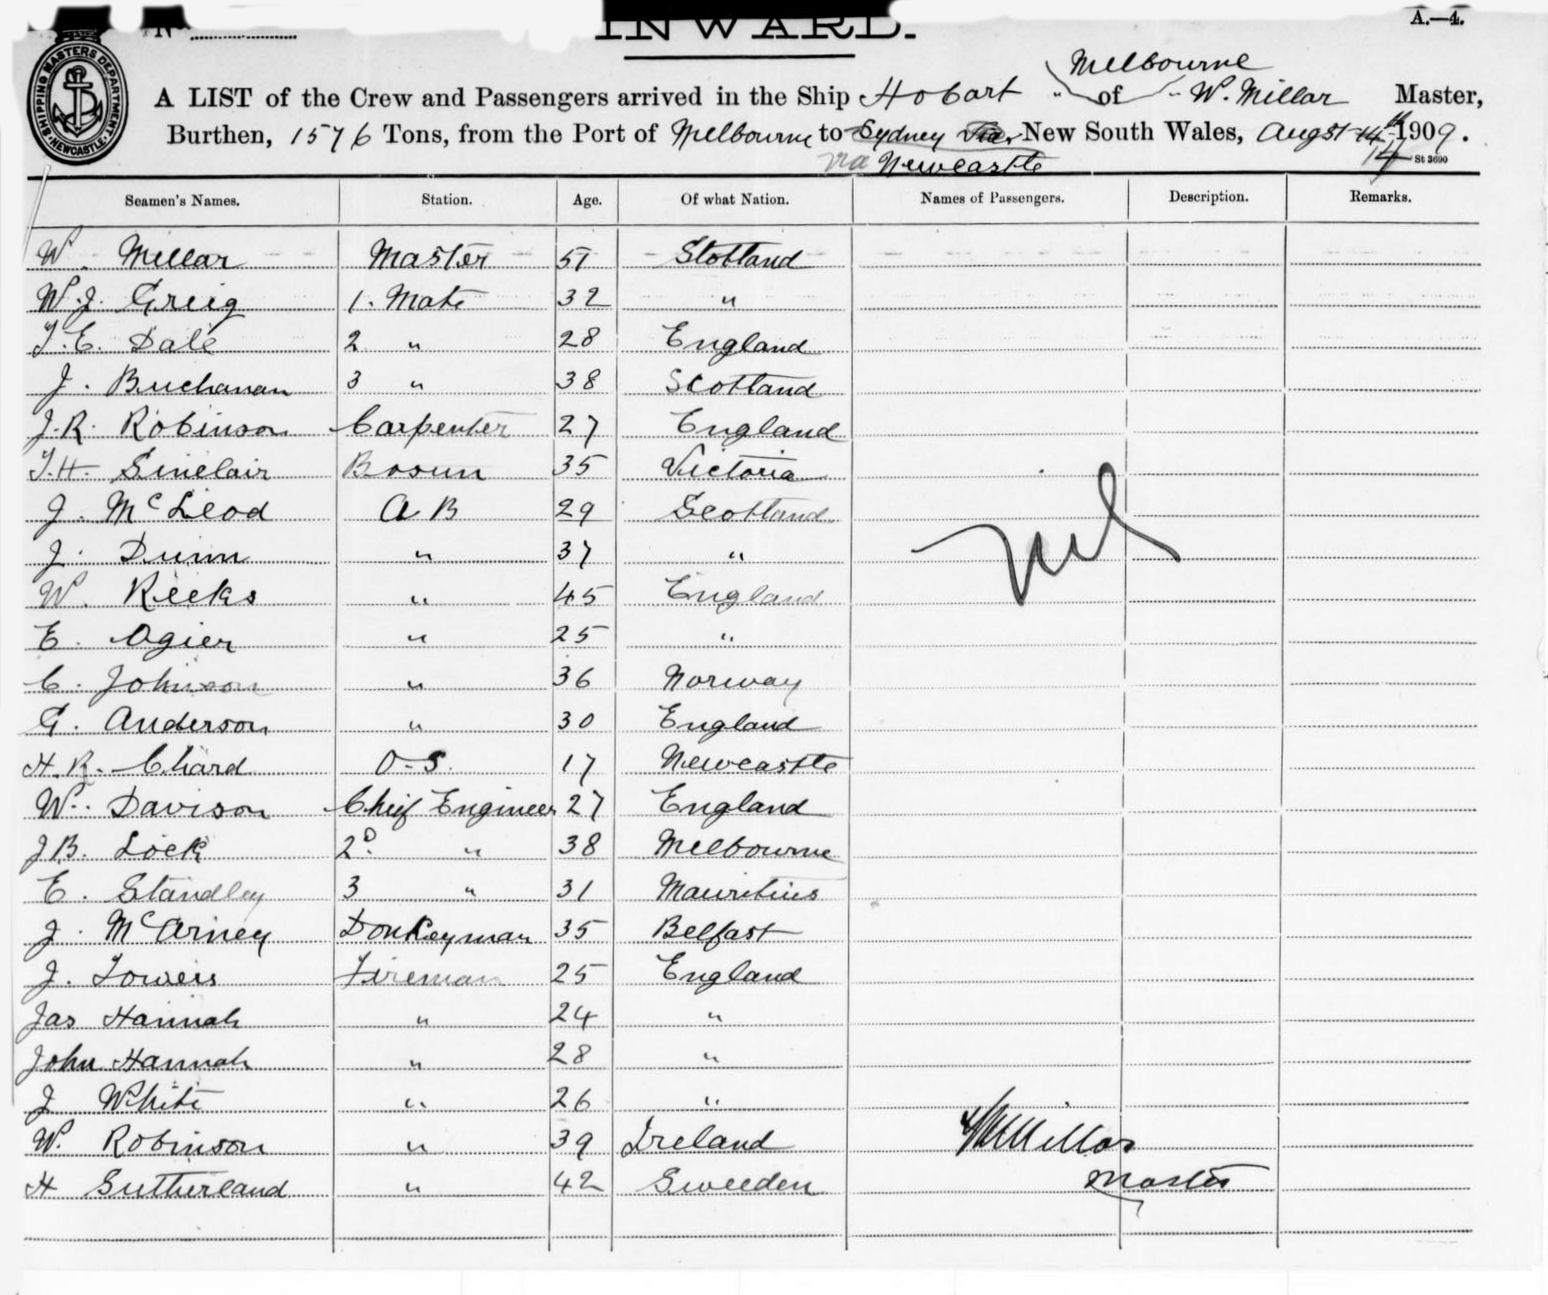 No
INWARD.
A.—4.
SHIPPING MASTERS DEPARTMENT NEWCASTLE
Melbourne
A LIST of the Crew and Passengers arrived in the Ship Hobart " of " W. Millar Master,
Burthen, 1576 Tons, from the Port of Melbourne to Sydney New South Wales, Augst 1909.
via Newcastle 14 St 3690
Seamen's Names. Station. Age. Of what Nation. Names of Passengers. Description. Remarks.
W. Millar Master 51 Stotland
W.J. Greig 1. Mate 32 "
T.E. Dale 2 " 28 England
J. Buchanan 3 " 38 Scotland
J.R. Robinson Carpenter 27 England
T.H. Sinclair Bosun 35 Victoria
J. McLeod A B 29 Scotland
J. Dunn " 37 "
Nil
W. Reeks " 45 England
E. Ogier " 25 "
C. Johnson " 36 Norway
G. Anderson " 30 England
H.R. Chard O-S. 17 Newcastle
W. Davison Chief Engineer 27 England
J.B. Lock 2D. " 38 Melbourne
E. Standley 3 " 31 Mauritius
J. McArney Donkeyman 35 Belfast
J. Towers Fireman 25 England
Jas Hannah " 24 "
John Hannah " 28 "
J White " 26 "
W. Robinson " 39 Ireland W Millar
H Sutherland " 42 Sweeden Master